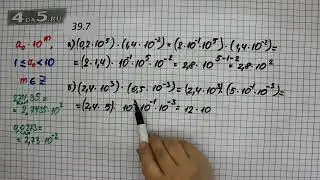 4DS.RU
39.7
a₀ · 10ᵐ,
1 ≤ a₀ < 10
m ∈ Z
274,35 =
= 2,7435·10²
0,0273 =
= 2,73·10⁻²
а) (0,2·10⁵) · (1,4·10⁻²) = (2·10⁻¹·10⁵) · (1,4·10⁻²) =
= (2·1,4) · 10⁻¹·10⁵·10⁻² = 2,8·10⁵⁻¹⁻² = 2,8·10²
б) (2,4·10³) · (0,5·10⁻³) = (2,4·10³) · (5·10⁻¹·10⁻³) =
= (2,4·5) · 10³·10⁻¹·10⁻³ = 12·10